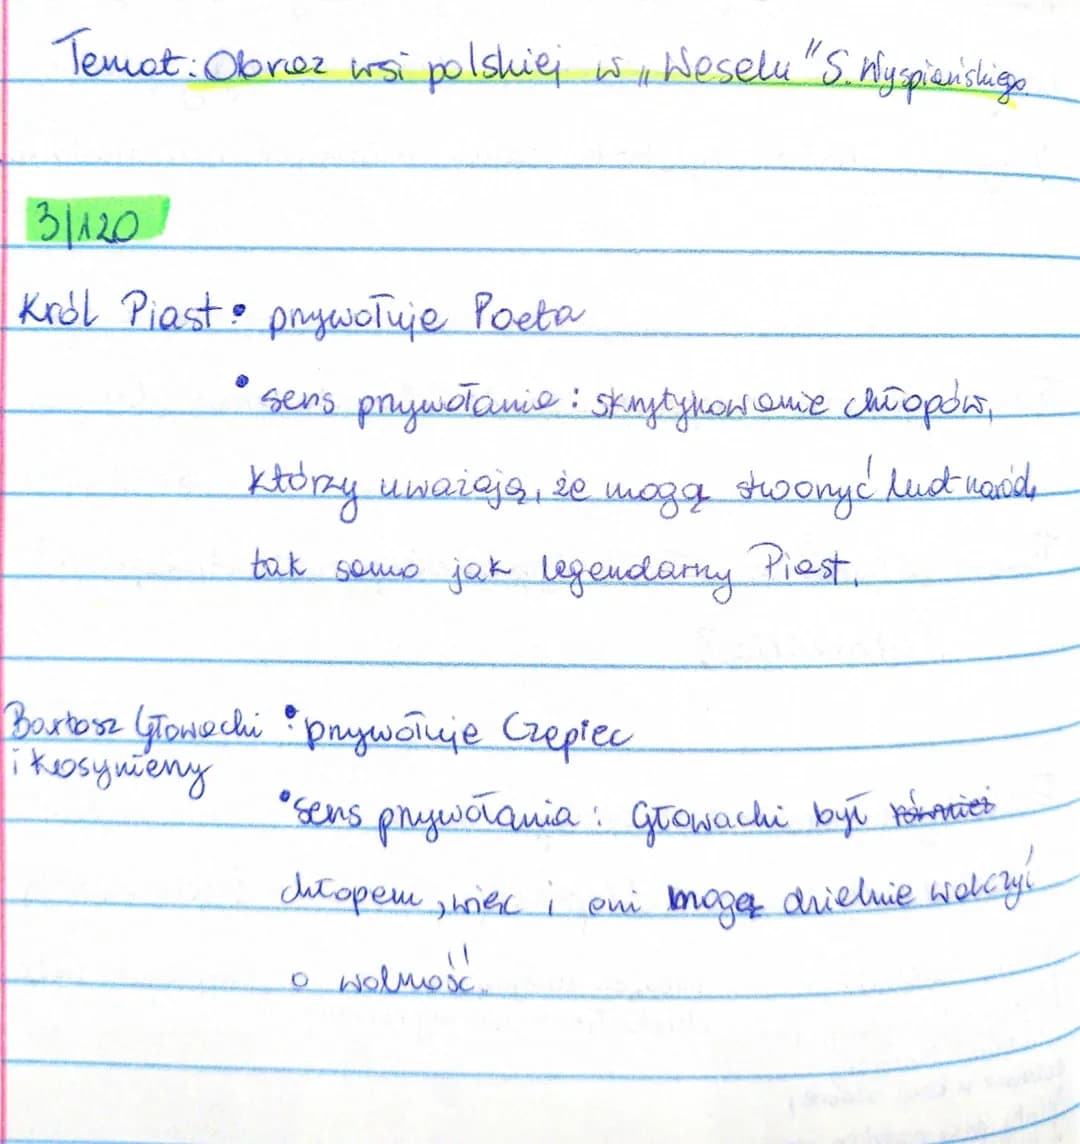 Temat: Obraz wsi polskiej w „Weselu" S. Wyspiańskiego.
3/120
Król Piast: • przywołuje Poeta
• sens przywołania: skrytykowanie chłopów,
którzy uważają, że mogą stworzyć lud-naród,
tak samo jak legendarny Piast.
Bartosz Głowacki : • przywołuje Czepiec
i kosynierzy
• sens przywołania: Głowacki był również
chłopem, więc i oni mogą dzielnie walczyć
o wolność.